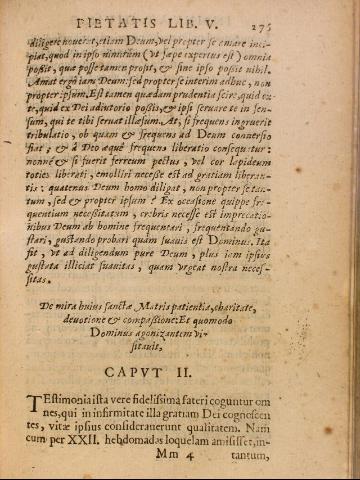 PIETATIS LIB. V. 275
diligere nouerat, etiam Deum, vel propter se amare inci-
piat, quod in ipso nimirum (vt sæpe expertus est) omnia
possit, quæ posse tamen prosit, & sine ipso possit nihil.
Amat ergo iam Deum: sed propter se interim adhuc, non
propter ipsum. Est tamen quædam prudentia scire, quid ex
te, quid ex Dei adiutorio possis, & ipsi seruare te in fen-
sum, qui te tibi seruat illæsum. At, si frequens ingruerit
tribulatio, ob quam & frequens ad Deum conuersio
fiat; & à Deo æquè frequens liberatio consequatur:
nonne & si fuerit ferreum pectus, vel cor lapideum
toties liberati, emolliri necesse est ad gratiam liberan-
tis: quatenus Deum homo diligat, non propter se tan-
tum, sed & propter ipsum? Ex occasione quippe fre-
quentium necessitatum, crebris necesse est imprecatio-
nibus Deum ab homine frequentari, frequentando gu-
stari, gustando probari quàm suauis est Dominus. Ita
fit, vt ad diligendum pure Deum, plus iam ipsius
gustata illiciat suauitas, quam vrgeat nostra neces-
sitas.
De mira huius sanctæ Matris patientia, charitate,
deuotione & compassione: Et quomodo
Dominus agonizantem vi-
sitauit,
CAPVT II.
TEstimonia ista vere fidelissima fateri coguntur om
nes, qui in infirmitate illa gratiam Dei cognoscen
tes, vitæ ipsius considerauerunt qualitatem. Nam
cum per XXII. hebdomadas loquelam amisisset, in-
Mm 4 tantum,